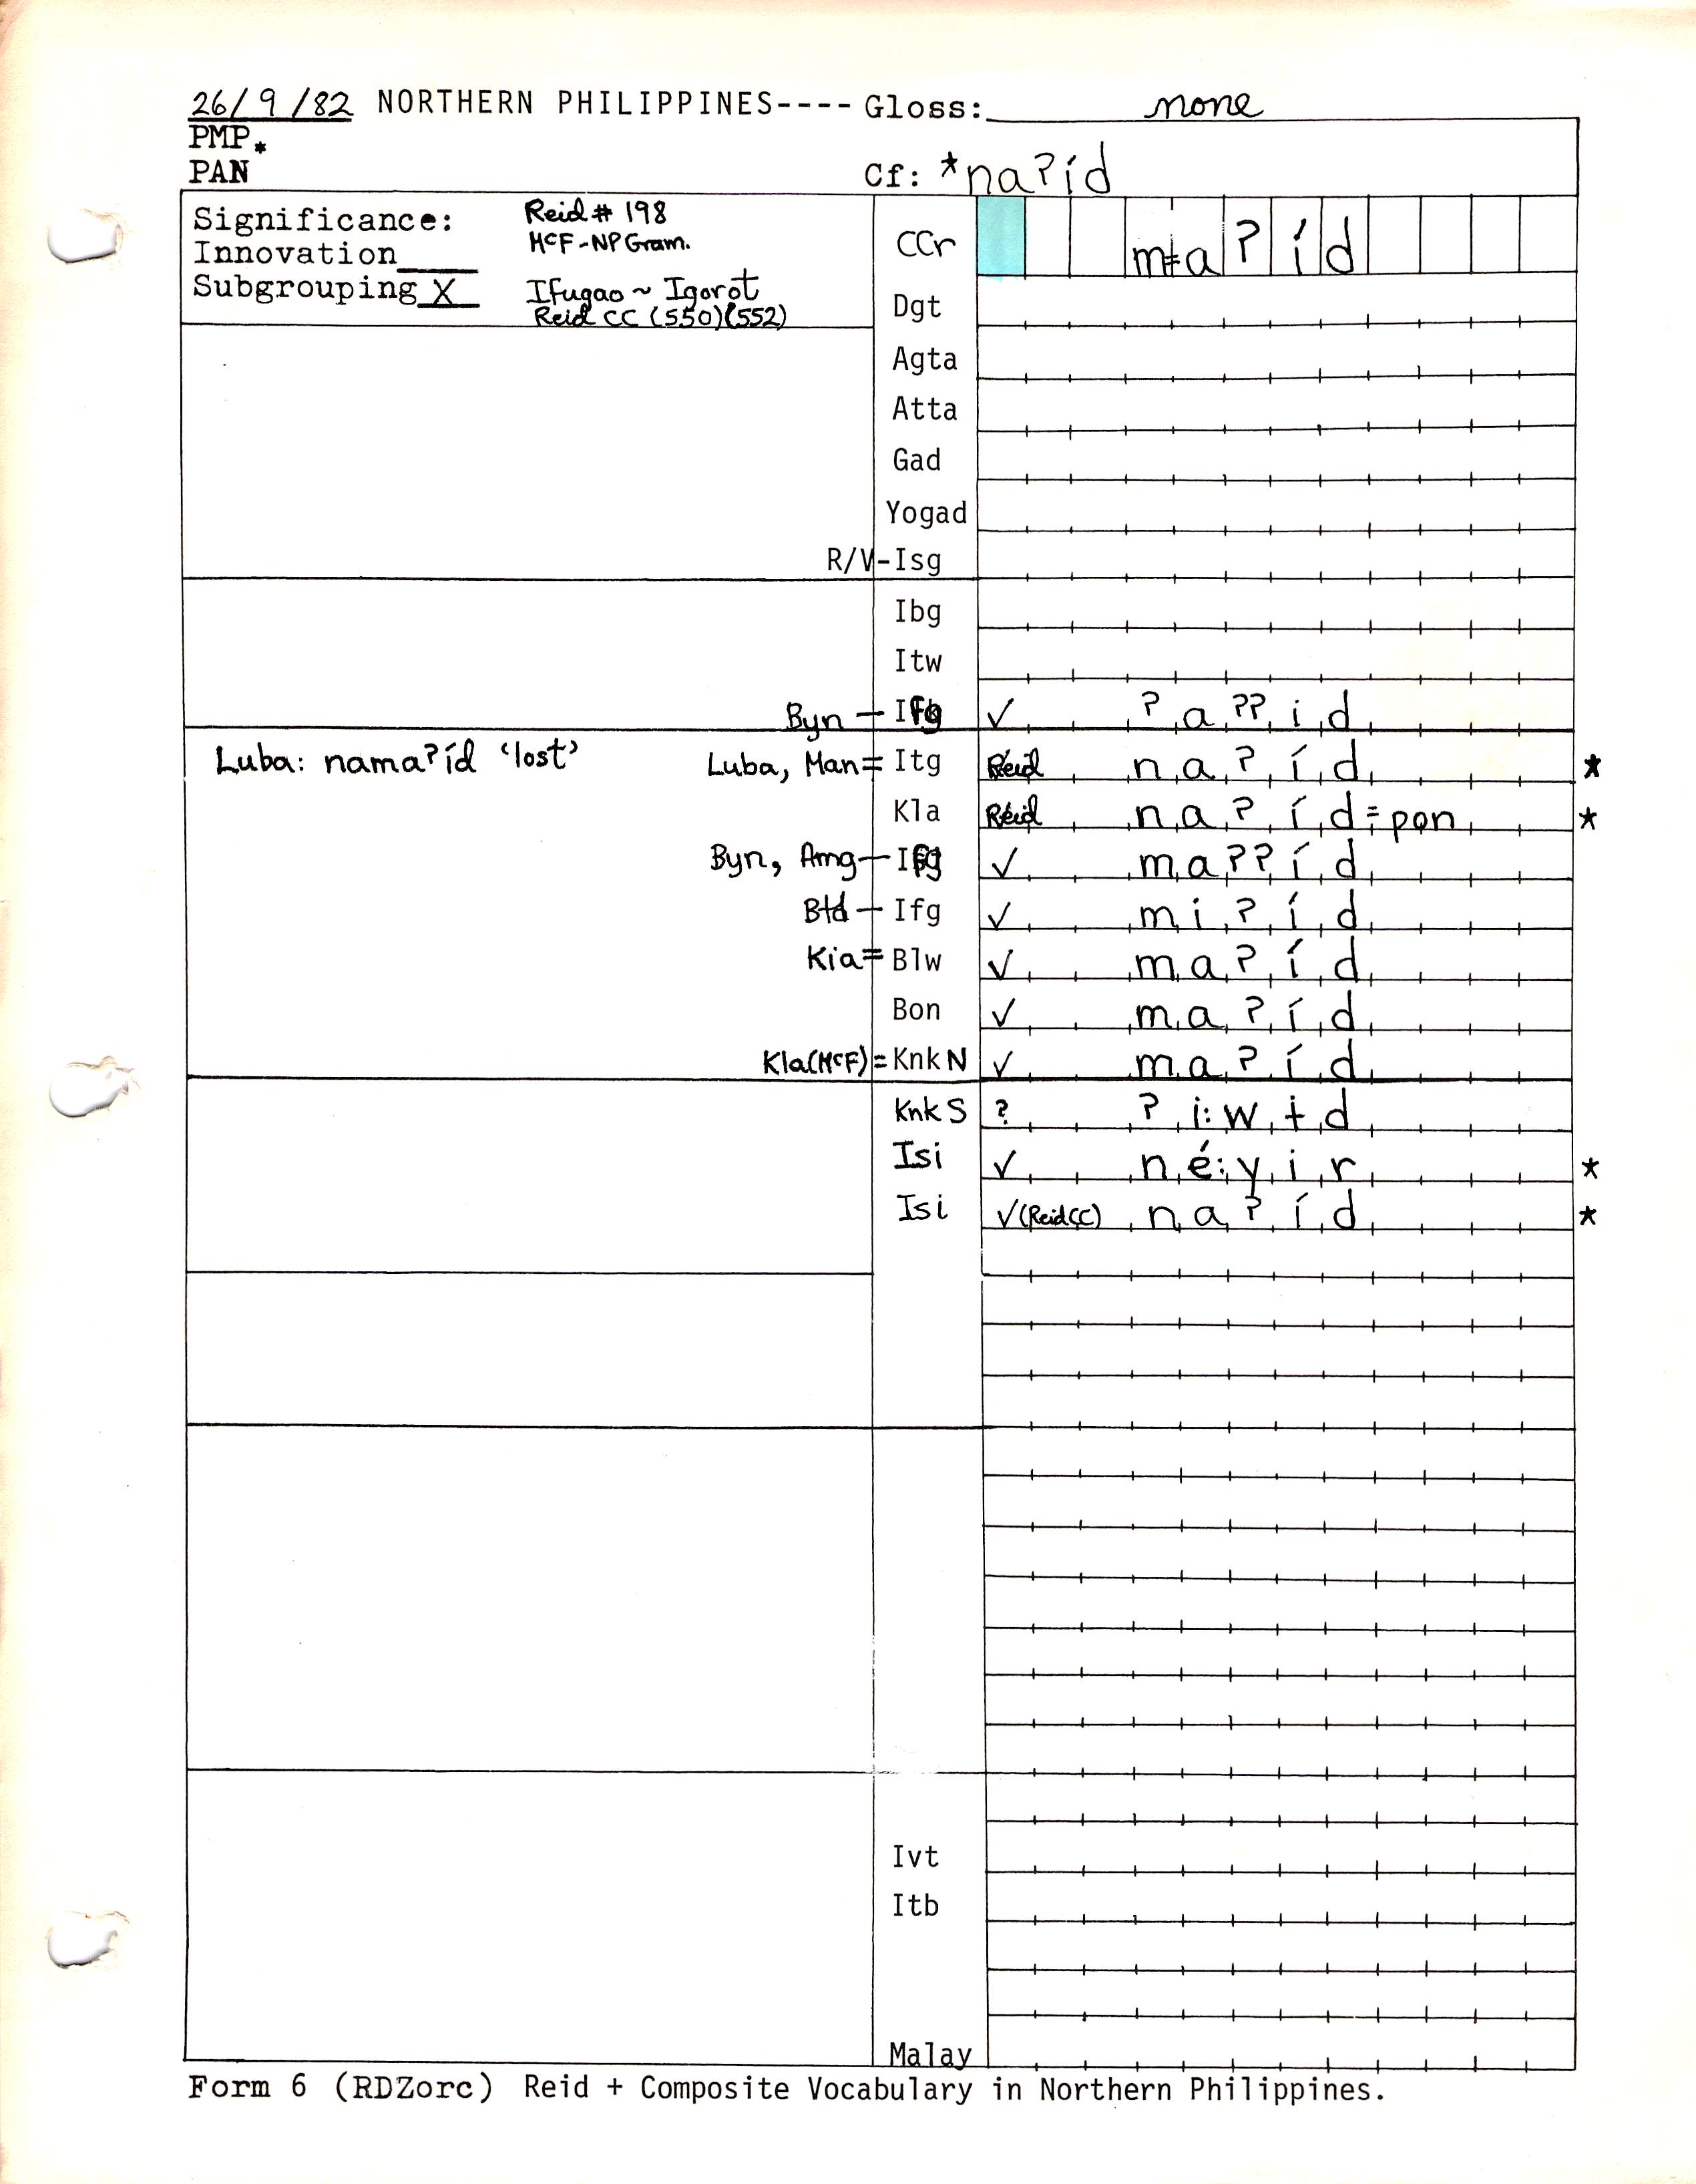 26/9/82 NORTHERN PHILIPPINES---- Gloss: none
PMP*
PAN Cf: *naʔíd
Significance: Reid # 198
Innovation McF-NPGram.
Subgrouping X Ifugao ~ Igorot
Reid CC (550)(552)
CCr m=aʔíd
Dgt
Agta
Atta
Gad
Yogad
R/V-Isg
Ibg
Itw
Byn – Ifg ✓ ʔaʔʔid
Luba: namaʔíd ‘lost’ Luba, Man= Itg Reid naʔíd *
Kla Reid naʔíd=pon *
Byn, Amg – Ifg ✓ maʔʔíd
Btd – Ifg ✓ miʔíd
Kia= Blw ✓ maʔíd
Bon ✓ maʔíd
Kla(McF) = Knk N ✓ maʔíd
Knk S ? ʔi:wɨd
Isi ✓ né:yir *
Isi ✓(Reid CC) naʔíd *
Ivt
Itb
Malay
Form 6 (RDZorc) Reid + Composite Vocabulary in Northern Philippines.